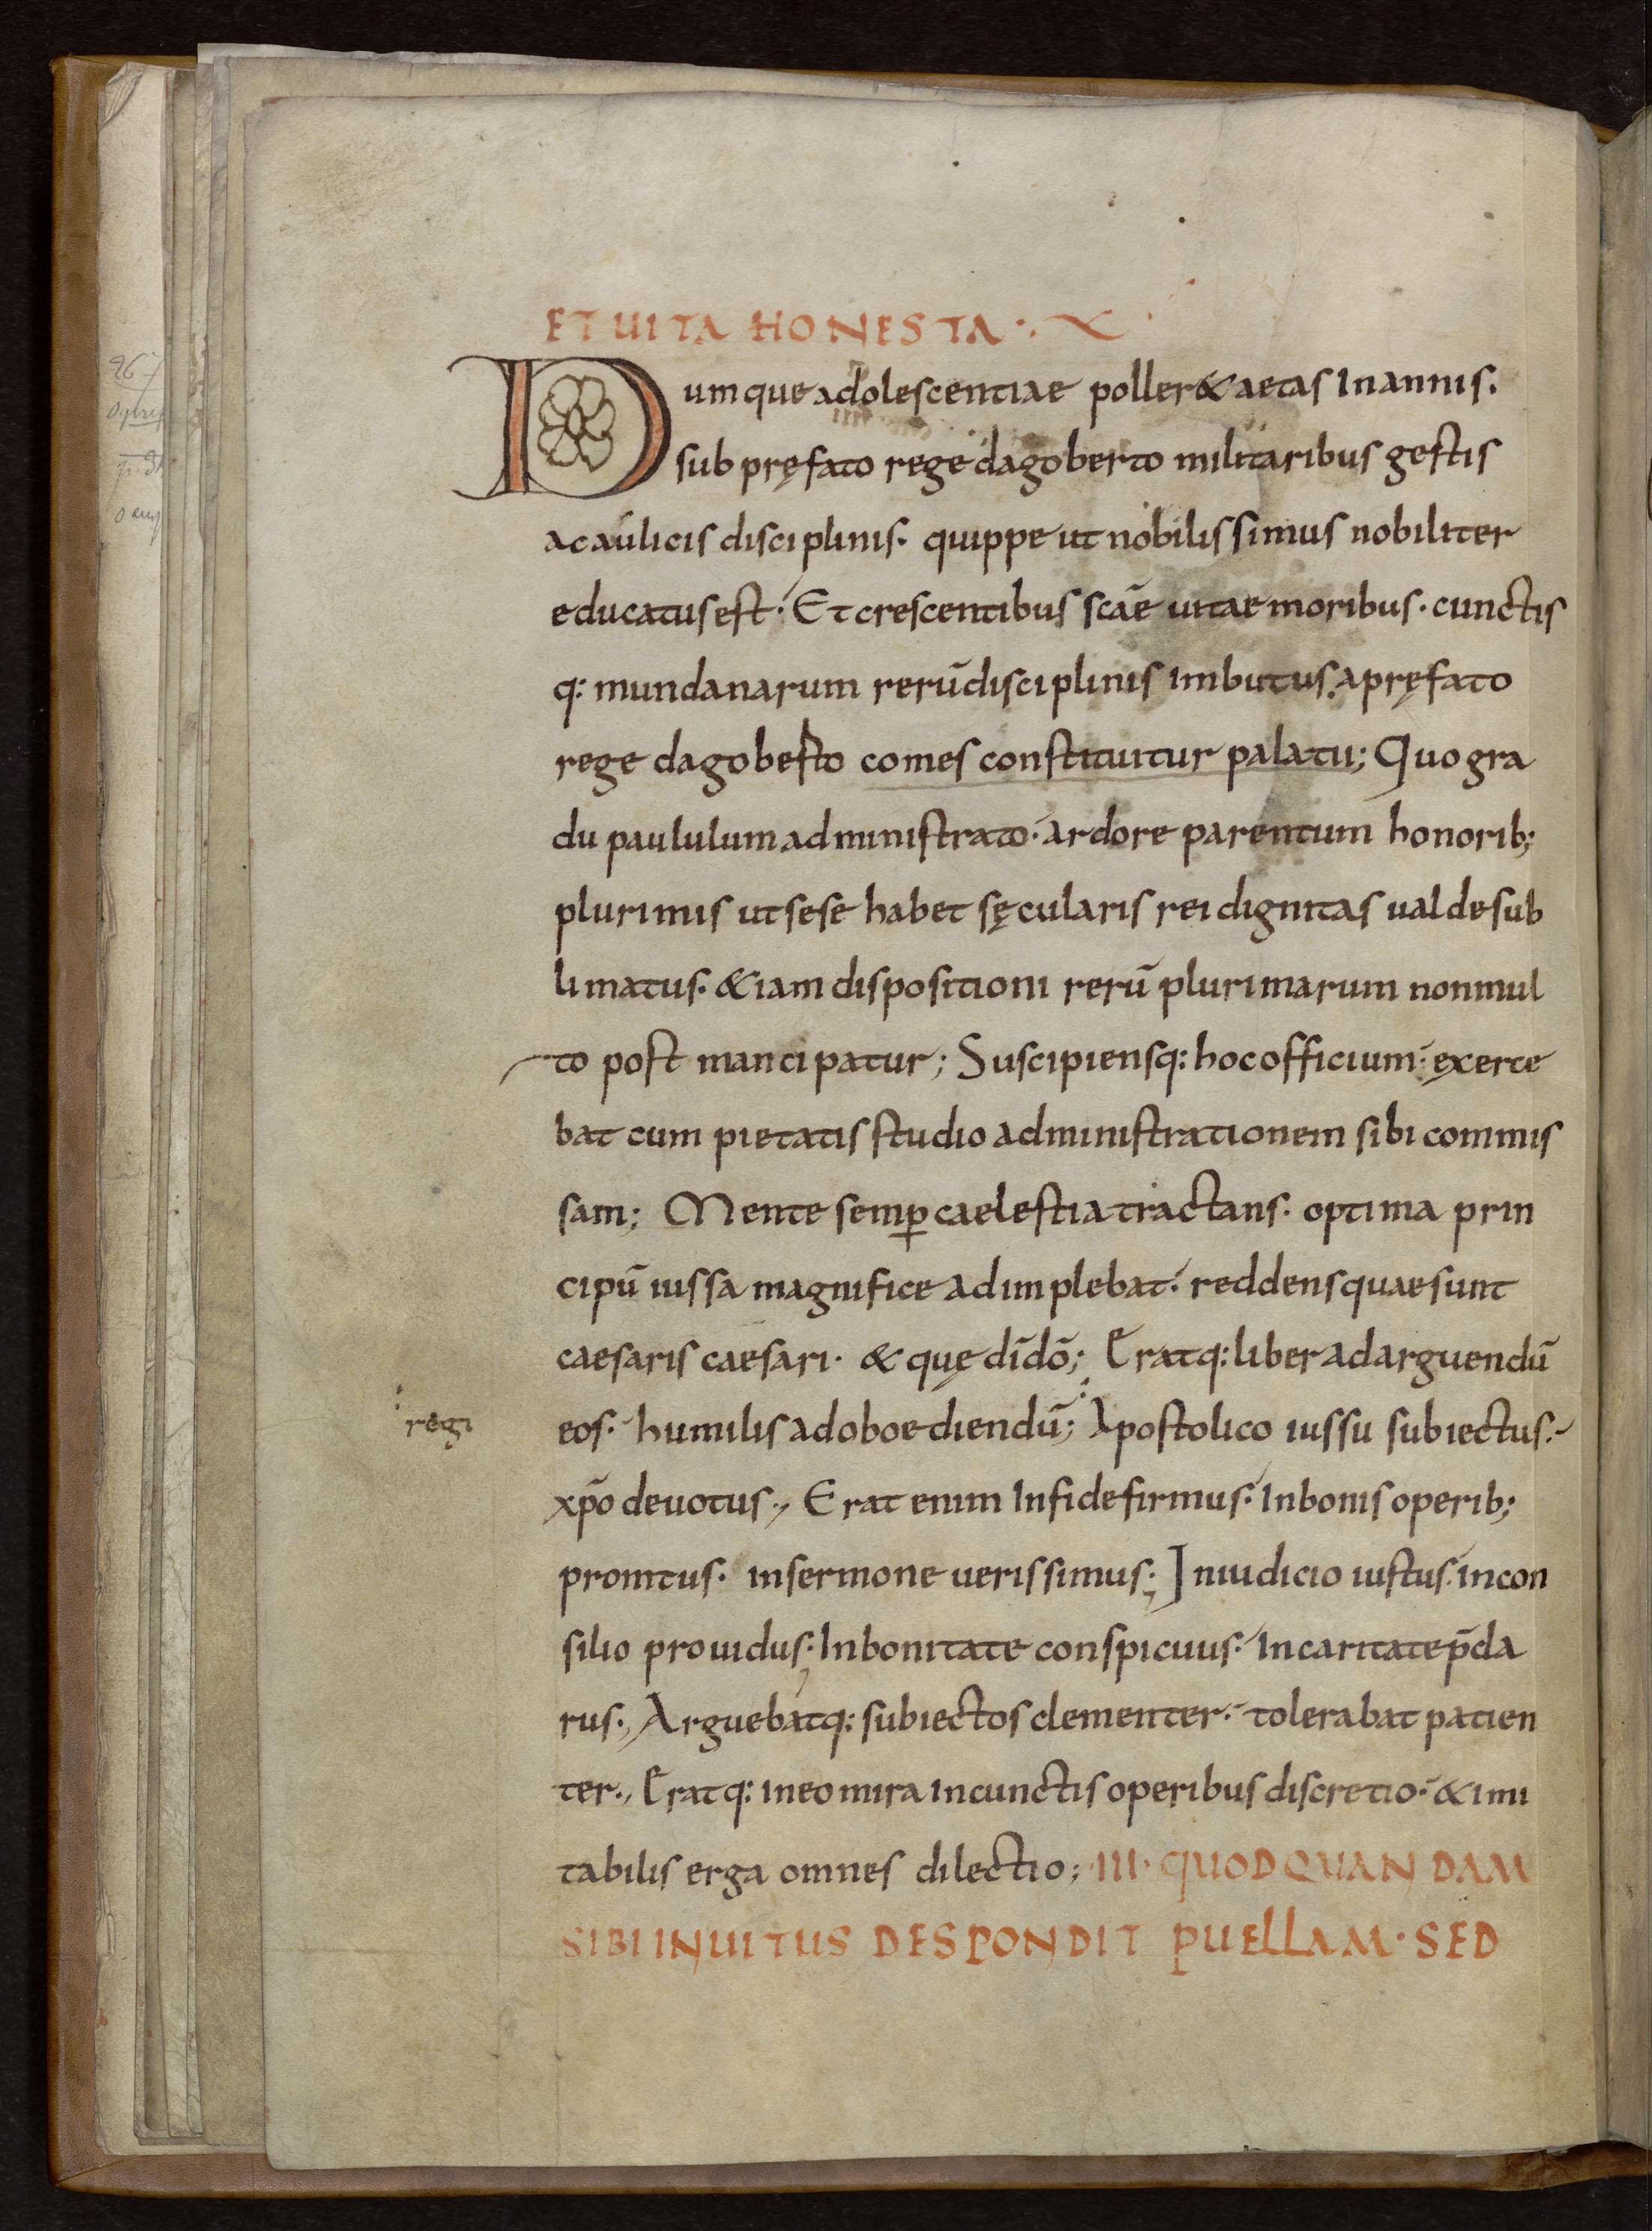 ET UITA HONESTA ·
Dumque adolescentiae poller& aetas In annis.
sub pręfato rege dagoberto militaribus gestis
ac aulicis disciplinis. quippe ut nobilissimus nobiliter
educatus est. Et crescentibus scāe uitae moribus. cunctis
q: mundanarum rerū disciplinis imbutus. a pręfato
rege dagoberto comes constituitur palatii; Quo gra
du paululum administrato. ardore parentum honorib;
plurimis ut sese habet sęcularis rei dignitas ualde sub
limatus. &iam dispositioni rerū plurimarum non mul
to post mancipatur; Suscipiensq: hoc officium. exerce
bat cum pietatis studio administrationem sibi commis
sam; Mente semp̲ caelestia tractans. optima prin
cipū iussa magnifice adimplebat. reddens quae sunt
caesaris caesari. & quę dī dō; Eratq: liber ad arguendū
regi
eos. humilis ad oboediendū; Apostolico iussu subiectus.
xp̄o deuotus., Erat enim In fide firmus. In bonis operib;
promtus. in sermone uerissimus; In iudicio iustus. in con
silio prouidus. In bonitate conspicuus. In caritate p̄cla
rus., Arguebatq: subiectos clementer. tolerabat patien
ter., Eratq: in eo mira in cunctis operibus discretio. & imi
tabilis erga omnes dilectio; ·III· QUOD QUANDAM
SIBI INUITUS DESPONDIT PUELLAM · SED